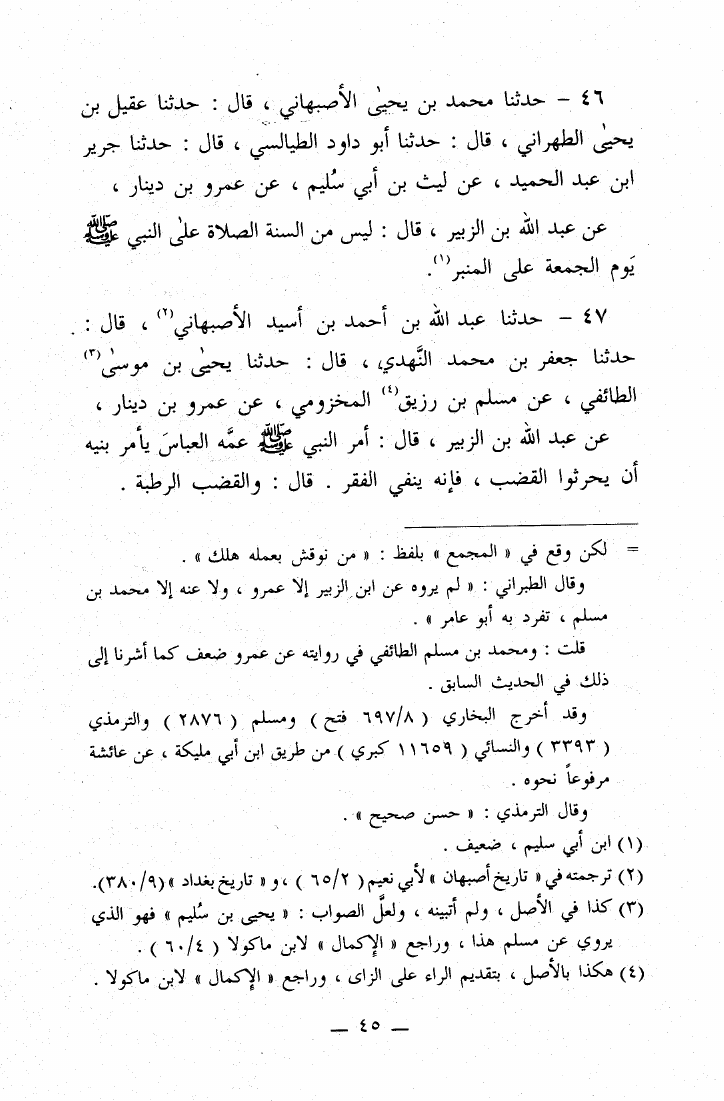 ٤٦ – حدثنا محمد بن يحيىٰ الأصبهاني ، قال : حدثنا عقيل بن
يحيىٰ الطهراني ، قال : حدثنا أبو داود الطيالسي ، قال : حدثنا جرير
ابن عبد الحميد ، عن ليث بن أبي سُليم ، عن عمرو بن دينار ،
عن عبد الله بن الزبير ، قال : ليس من السنة الصلاة علىٰ النبي ﷺ
يَوم الجمعة على المنبر(١).
٤٧ – حدثنا عبد الله بن أحمد بن أسيد الأصبهاني(٢) ، قال :
حدثنا جعفر بن محمد النَّهدي ، قال : حدثنا يحيىٰ بن موسىٰ(٣)
الطائفي ، عن مسلم بن رزيق(٤) المخزومي ، عن عمرو بن دينار ،
عن عبد الله بن الزبير ، قال : أمر النبي ﷺ عمَّه العباسَ يأمر بنيه
أن يحرثوا القضب ، فإنه ينفي الفقر . قال : والقضب الرطبة .
= لكن وقع في « المجمع » بلفظ : « من نوقش بعمله هلك » .
وقال الطبراني : « لم يروه عن ابن الزبير إلا عمرو ، ولا عنه إلا محمد بن
مسلم ، تفرد به أبو عامر » .
قلت : ومحمد بن مسلم الطائفي في روايته عن عمرو ضعف كما أشرنا إلى
ذلك في الحديث السابق .
وقد أخرج البخاري ( ٦٩٧/٨ فتح ) ومسلم ( ٢٨٧٦ ) والترمذي
( ٣٣٩٣ ) والنسائي ( ١١٦٥٩ كبري ) من طريق ابن أبي مليكة ، عن عائشة
مرفوعاً نحوه .
وقال الترمذي : « حسن صحيح » .
(١) ابن أبي سليم ، ضعيف .
(٢) ترجمته في « تاريخ أصبهان » لأبي نعيم ( ٦٥/٢ ) ، و « تاريخ بغداد » (٣٨٠/٩).
(٣) كذا في الأصل ، ولم أتبينه ، ولعلَّ الصواب : « يحيى بن سُليم » فهو الذي
يروي عن مسلم هذا ، وراجع « الإكمال » لابن ماكولا ( ٦٠/٤ ) .
(٤) هكذا بالأصل ، بتقديم الراء على الزاى ، وراجع « الإكمال » لابن ماكولا .
— ٤٥ —